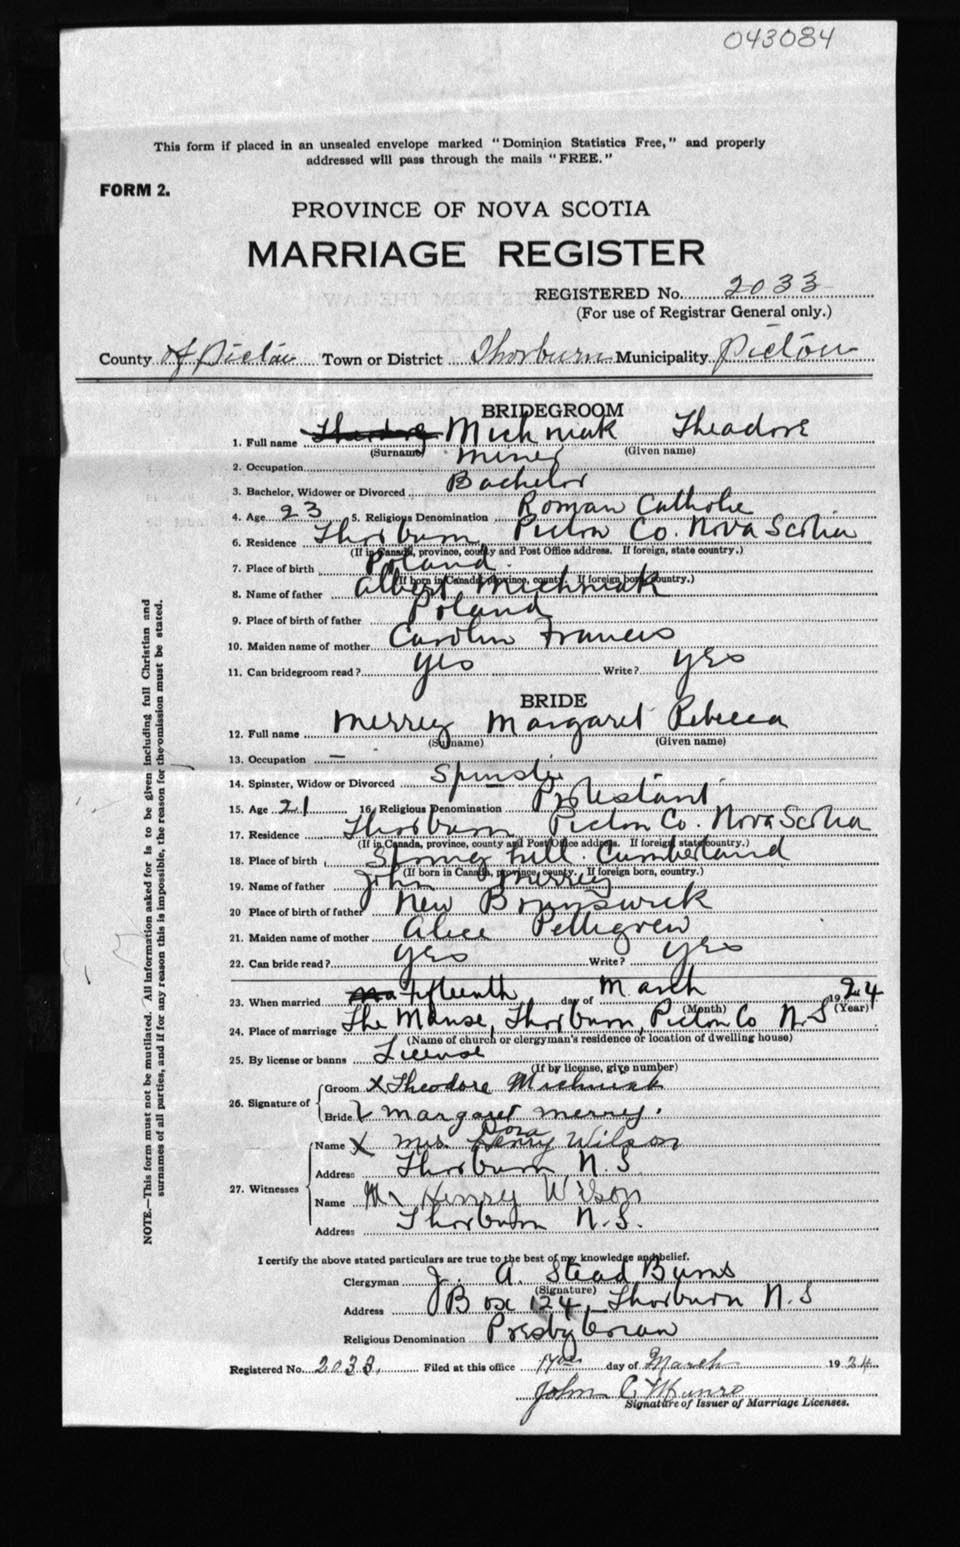 043084
This form if placed in an unsealed envelope marked "Dominion Statistics Free," and properly
addressed will pass through the mails "FREE."
FORM 2.
PROVINCE OF NOVA SCOTIA
MARRIAGE REGISTER
REGISTERED No. 2033
(For use of Registrar General only.)
County of Pictou Town or District Thorburn Municipality Pictou
BRIDEGROOM
1. Full name Theodore Michniak Theadore
(Surname) (Given name)
2. Occupation miner
3. Bachelor, Widower or Divorced Bachelor
4. Age 23 5. Religious Denomination Roman Catholic
6. Residence Thorburn Pictou Co. Nova Scotia
(If in Canada, province, county and Post Office address. If foreign, state country.)
7. Place of birth Poland.
(If born in Canada, province, county. If foreign born, country.)
8. Name of father Albert Michniak
9. Place of birth of father Poland
10. Maiden name of mother Carolin Francis
11. Can bridegroom read? yes Write? yes
BRIDE
12. Full name Merrey Margaret Rebecca
(Surname) (Given name)
13. Occupation —
14. Spinster, Widow or Divorced Spinster
15. Age 21 16. Religious Denomination Protestant
17. Residence Thorburn Pictou Co. Nova Scotia
(If in Canada, province, county and Post Office address. If foreign, state country.)
18. Place of birth Spring hill. Cumberland
(If born in Canada, province, county. If foreign born, country.)
19. Name of father John Merrey
20 Place of birth of father New Brunswick
21. Maiden name of mother Alice Pettigrew
22. Can bride read? yes Write? yes
23. When married fifteenth day of March 1924
(Month) (Year)
24. Place of marriage The Manse, Thorburn, Pictou Co N.S
(Name of church or clergyman's residence or location of dwelling house)
25. By license or banns License
(If by license, give number)
26. Signature of Groom X Theodore Michniak
Bride X Margaret Merrey.
27. Witnesses
Name X Mrs. Dora Henry Wilson
Address Thorburn N.S
Name Mr Henry Wilson
Address Thorburn N.S.
I certify the above stated particulars are true to the best of my knowledge and belief.
Clergyman J. A. Stead Burns
(Signature)
Address Box 124, Thorburn N.S
Religious Denomination Presbyterian
Registered No. 2033. Filed at this office 17 day of March 1924
John C Munro
Signature of Issuer of Marriage Licenses.
NOTE.—This form must not be mutilated. All information asked for is to be given including full Christian and
surnames of all parties, and if for any reason this is impossible, the reason for the omission must be stated.